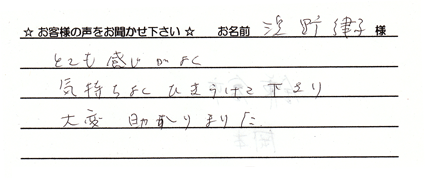 ☆ お客様の声をお聞かせ下さい ☆ お名前 浜野 律子 様
とても感じがよく
気持ちよくひきうけて下さり
大変 助かりました。